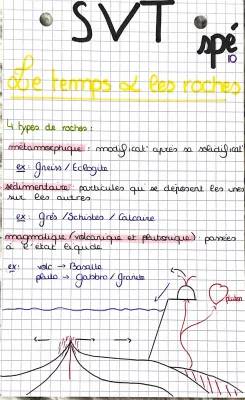 SVT
spé
Le temps & les roches
4 types de roches :
métamorphique : modificat° après sa solidificat°
ex : Gneiss / Eclogite
sédimentaire : particules qui se déposent les unes
sur les autres
ex : Grés / Schistes / Calcaire
magmatique (volcanique et plutonique) : passées
à l'état liquide
ex : volc → Basalte
pluto → Gabbro / Granite